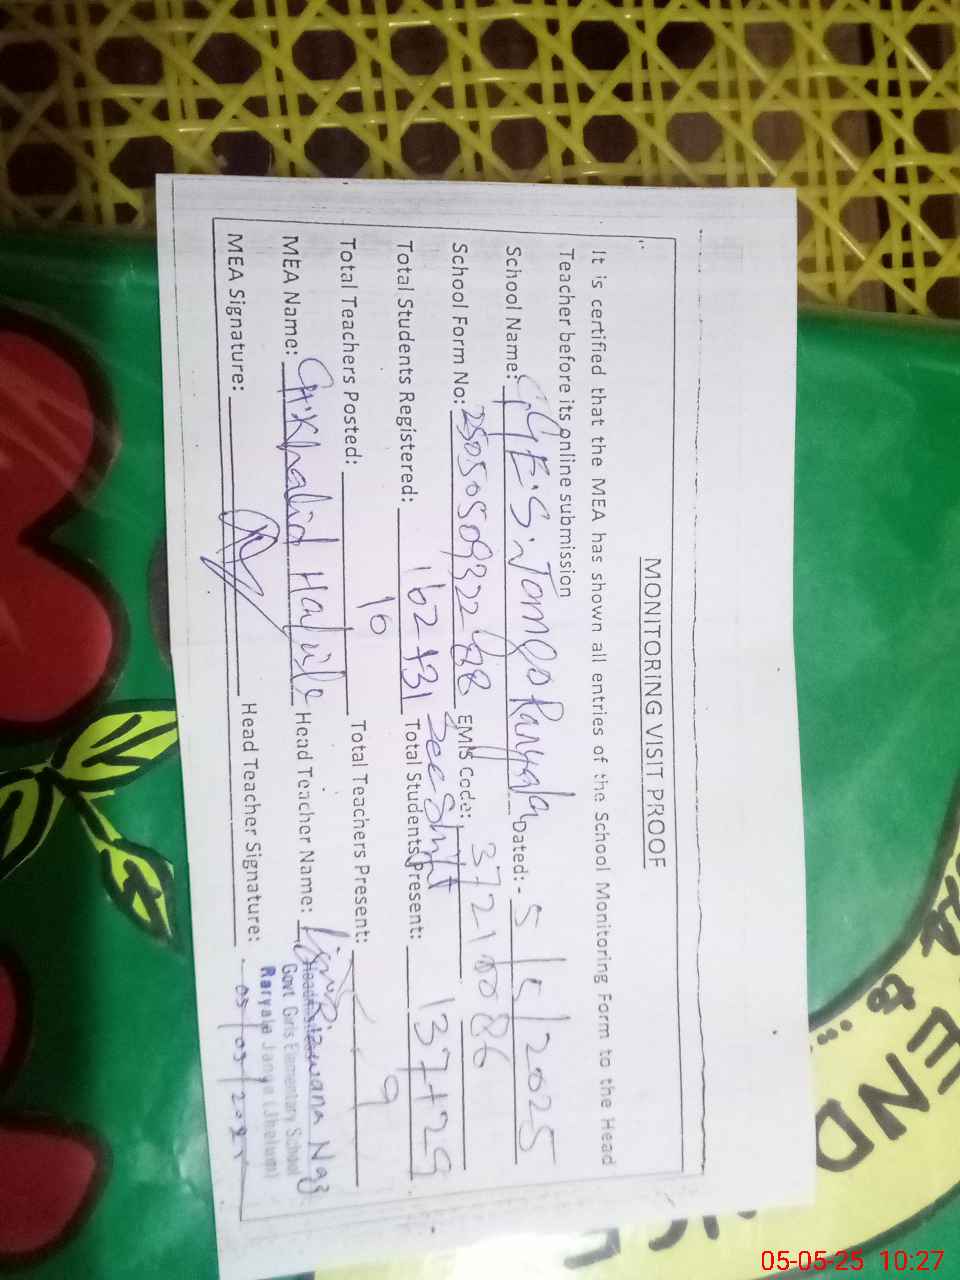 MONITORING VISIT PROOF
It is certified that the MEA has shown all entries of the School Monitoring Form to the Head
Teacher before its online submission
School Name: G.G.E.S. Janga Ranyala Dated: - 5/5/2025
School Form No: EMIS Code: 37210086
Total Students Registered: 162+31 Total Students Present: 137+29
Total Teachers Posted: 10 Total Teachers Present: 9
MEA Name: Ch. Khalid Hafeez Head Teacher Name: Rizwana Naz
Govt Girls Elementary School
MEA Signature: Head Teacher Signature:
Raryala Janga (Jhelum)
END
05-05-25 10:27